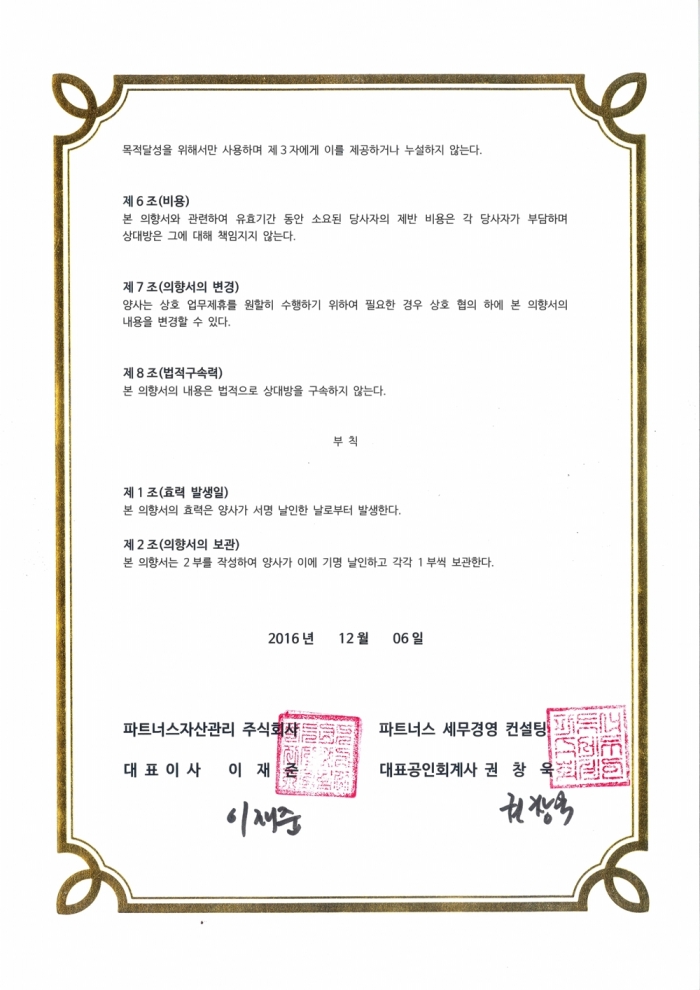 목적달성을 위해서만 사용하며 제 3 자에게 이를 제공하거나 누설하지 않는다.
제 6 조(비용)
본 의향서와 관련하여 유효기간 동안 소요된 당사자의 제반 비용은 각 당사자가 부담하며
상대방은 그에 대해 책임지지 않는다.
제 7 조(의향서의 변경)
양사는 상호 업무제휴를 원할히 수행하기 위하여 필요한 경우 상호 협의 하에 본 의향서의
내용을 변경할 수 있다.
제 8 조(법적구속력)
본 의향서의 내용은 법적으로 상대방을 구속하지 않는다.
부 칙
제 1 조(효력 발생일)
본 의향서의 효력은 양사가 서명 날인한 날로부터 발생한다.
제 2 조(의향서의 보관)
본 의향서는 2 부를 작성하여 양사가 이에 기명 날인하고 각각 1 부씩 보관한다.
2016 년 12 월 06 일
파트너스자산관리 주식회사 파트너스 세무경영 컨설팅
대 표 이 사 이 재 준 대표공인회계사 권 창 욱
이재준 권창욱